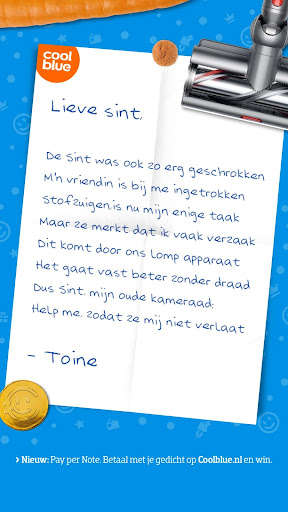 cool
blue
Lieve sint,
De Sint was ook zo erg geschrokken
M'n vriendin is bij me ingetrokken
Stofzuigen.is nu mijn enige taak
Maar ze merkt dat ik vaak verzaak
Dit komt door ons lomp apparaat
Het gaat vast beter zonder draad
Dus Sint, mijn oude kameraad;
Help me, zodat ze mij niet verlaat
- Toine
> Nieuw: Pay per Note. Betaal met je gedicht op Coolblue.nl en win.